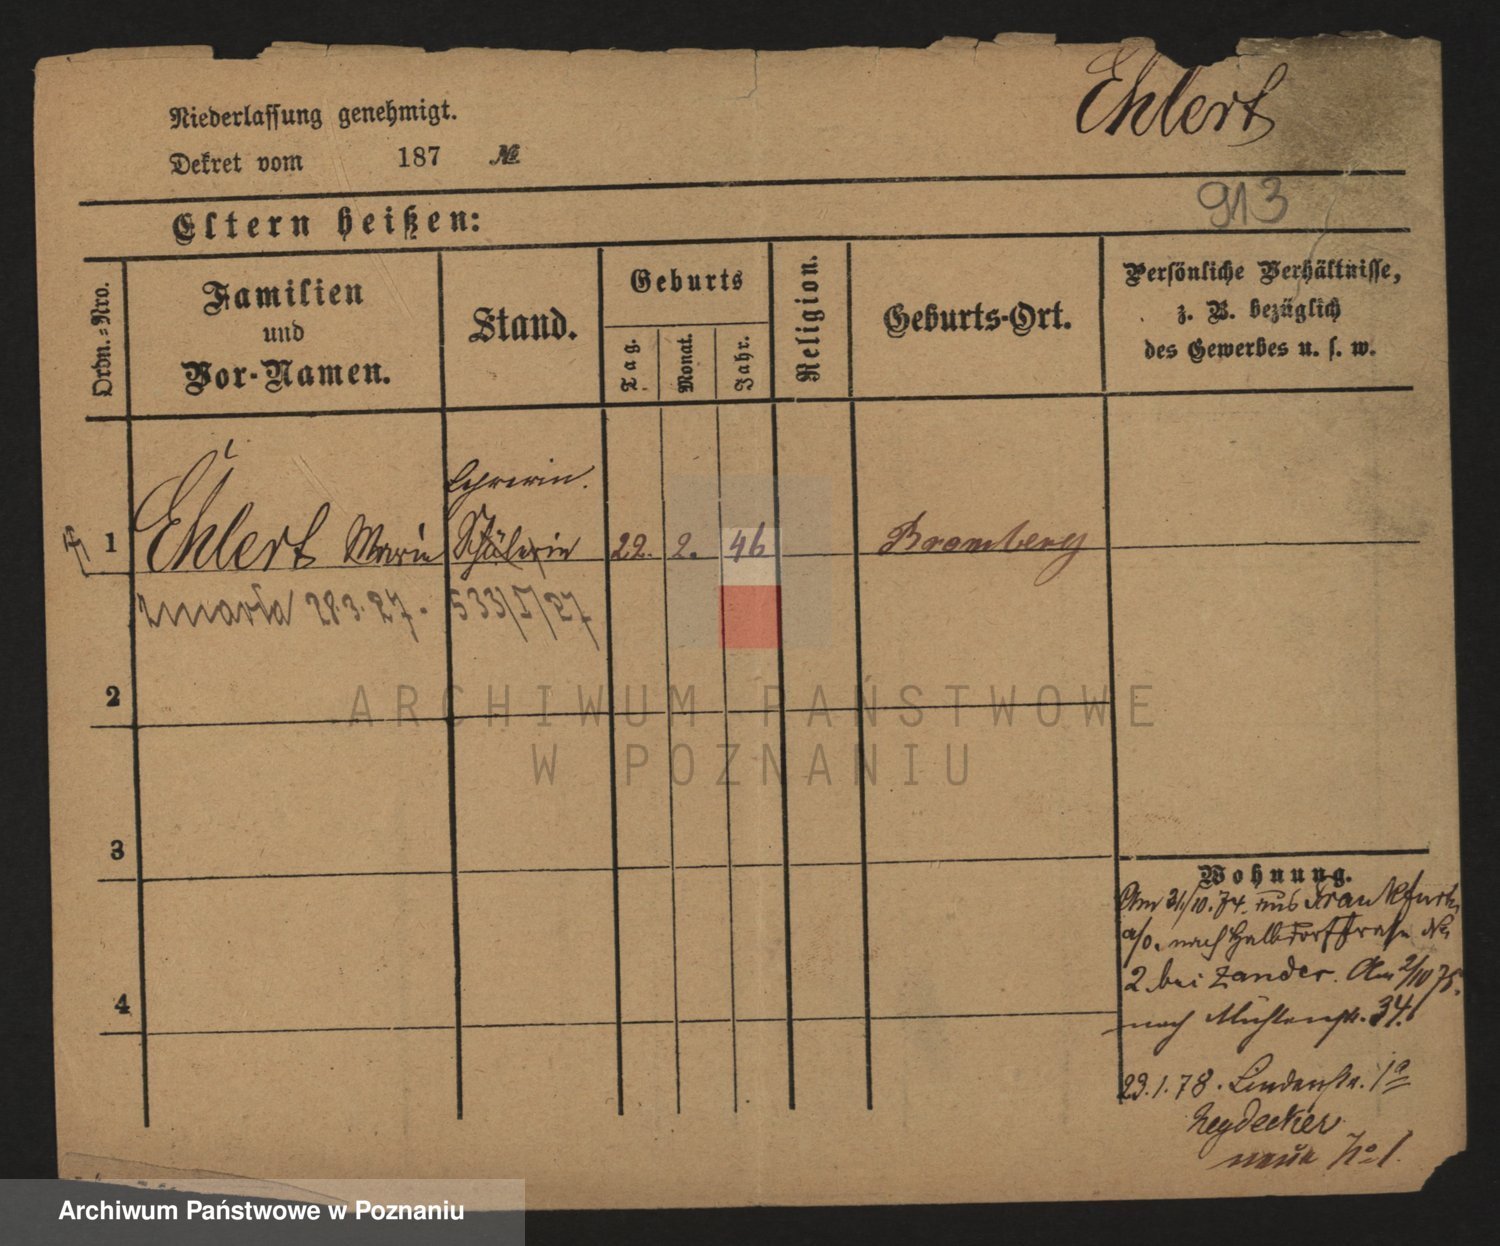 Ehlert
Niederlassung genehmigt.
Dekret vom 187 №
913
Eltern heißen:
Ordn.-Nro.
Familien
und
Vor-Namen.
Stand.
Geburts
Tag.
Monat.
Jahr.
Religion.
Geburts-Ort.
Persönliche Verhältnisse,
z. B. bezüglich
des Gewerbes u. s. w.
Lehrerin.
1 Ehlert Marie Schülerin 22. 2. 46 Bromberg
zmarła 28.3.27. 533/I/27
2
3
4
Wohnung.
Am 31/10.74. aus Frankfurt
a/O. nach Halbdorfstraße No
2 bei Zander. Am 2/10 75.
nach Mühlenstr. 34.
23.1.78. Lindenstr. 1a
Neydecker
neue No 1.
ARCHIWUM PAŃSTWOWE
W POZNANIU
Archiwum Państwowe w Poznaniu